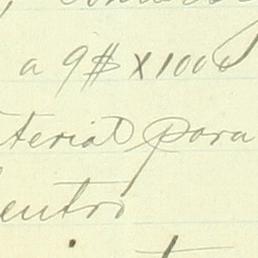 a 9$ X 100
terial para
entro